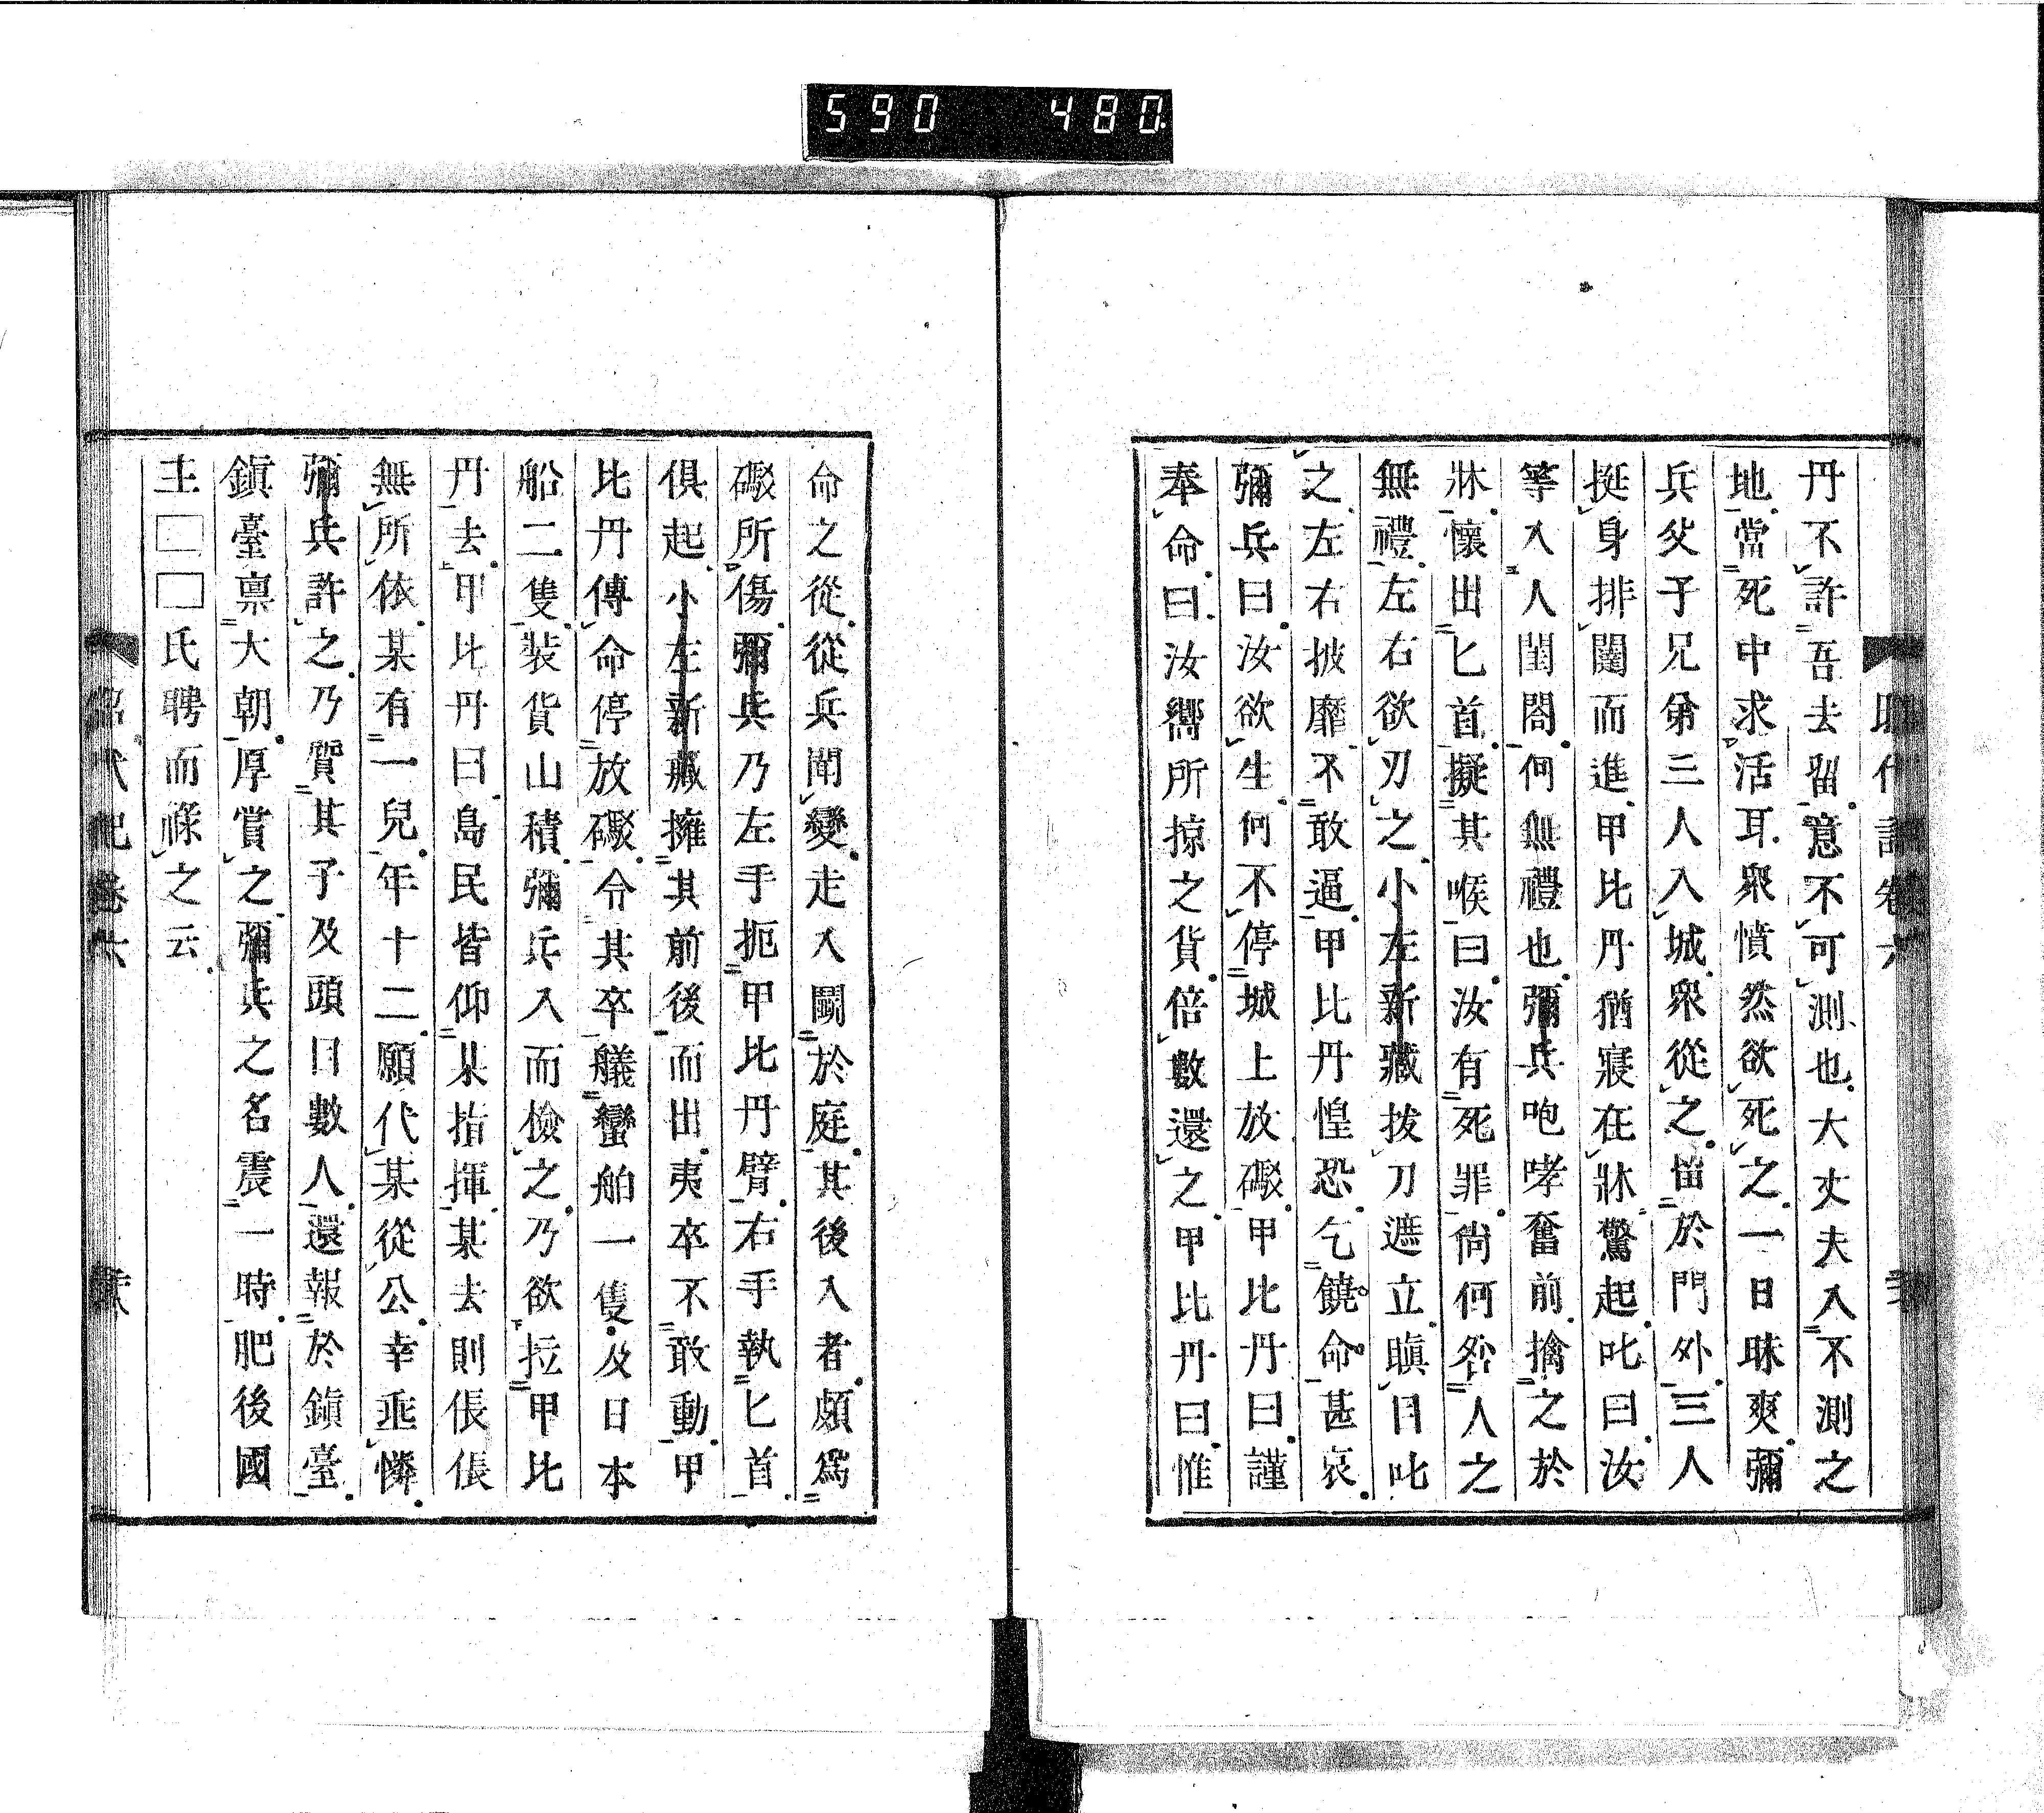 590 480
丹不許吾去留意不可測也大丈夫入不測之
地當死中求活耳衆憤然欲死之一日昧爽彌
兵父子兄弟三人入城衆從之留於門外三人
挺身排闥而進甲比丹猶寢在牀驚起叱曰汝
等入人閨閤何無禮也彌兵咆哮奮前擒之於
牀懷出匕首擬其喉曰汝有死罪尚何咎人之
無禮左右欲刃之小左新藏拔刀遮立瞋目叱
之左右披靡不敢逼甲比丹惶恐乞饒命甚哀
彌兵曰汝欲生何不停城上放礮甲比丹曰謹
奉命曰汝嚮所掠之貨倍數還之甲比丹曰惟
命之從從兵聞變走入鬭於庭其後入者頗爲
礮所傷彌兵乃左手扼甲比丹臂右手執匕首
俱起小左新藏擁其前後而出夷卒不敢動甲
比丹傳命停放礮令其卒艤蠻舶一隻及日本
船二隻裝貨山積彌兵入而檢之乃欲拉甲比
丹去甲比丹曰島民皆仰某指揮某去則倀倀
無所依某有一兒年十二願代某從公幸垂憐
彌兵許之乃質其子及頭目數人還報於鎭臺
鎭臺稟大朝厚賞之彌兵之名震一時肥後國
主□□氏聘而祿之云